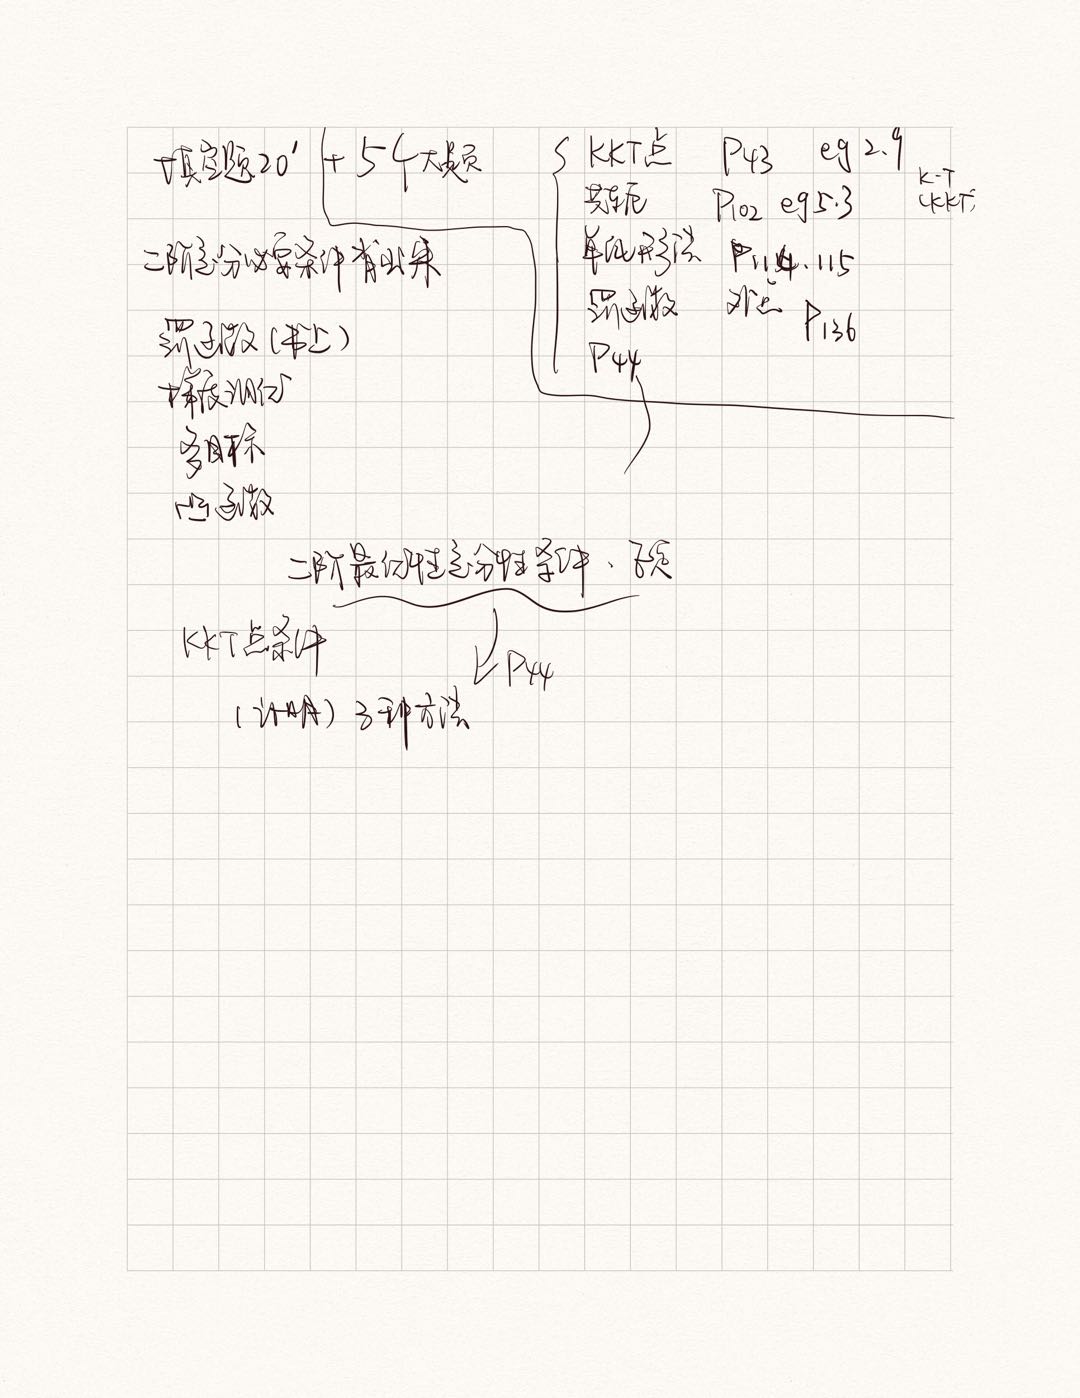 填空题20' + 5个大题
二阶充分必要条件背出来
罚函数(书上)
梯度
多目标
凸函数
KKT点 P43 eg 2.9
K-T
(KKT)
共轭 P102 eg5.3
单纯形法 P114.115
罚函数 对点 P136
P44
二阶最优性充分性条件、
P44
KKT点条件
3种方法